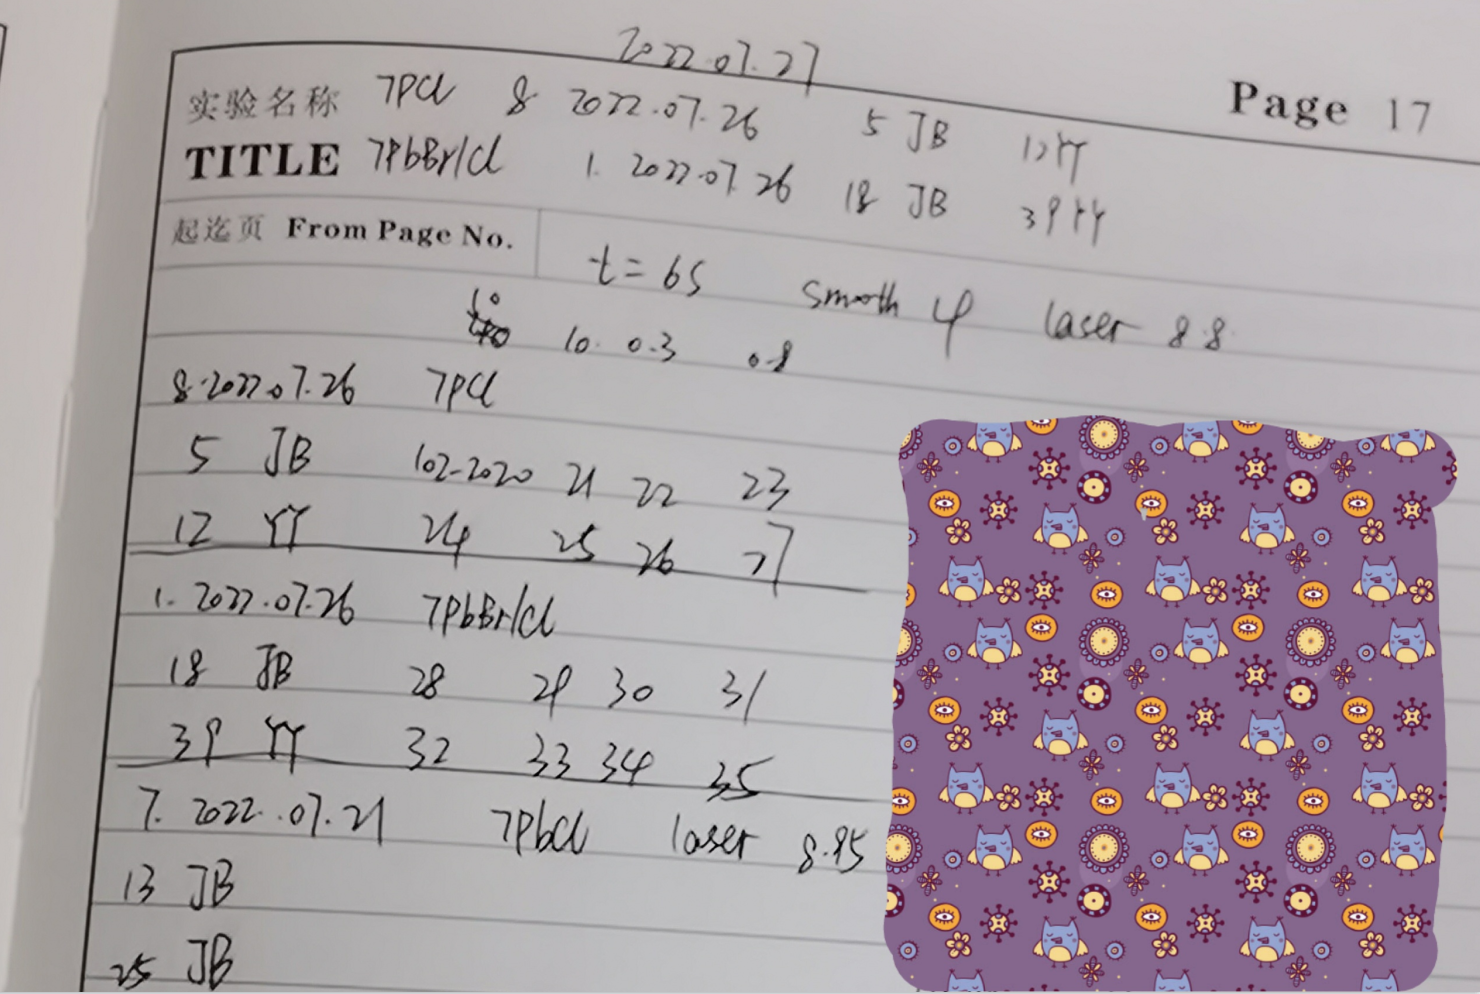 2022.07.27
Page 17
实验名称 7PCl 8 2022.07.26 5 JB 12YY
TITLE 7PbBr/Cl 1. 2022.07.26 18 JB 39YY
起迄页 From Page No.
t=65 smooth 4 laser 8.8
10
10. 0.3 0.8
8.2022.07.26 7PCl
5 JB 102-2020 21 22 23
12 YY 24 25 26 27
1. 2022.07.26 7PbBr/Cl
18 JB 28 29 30 31
39 YY 32 33 34 35
7. 2022.07.21 7PbCl laser 8.85
13 JB
25 JB